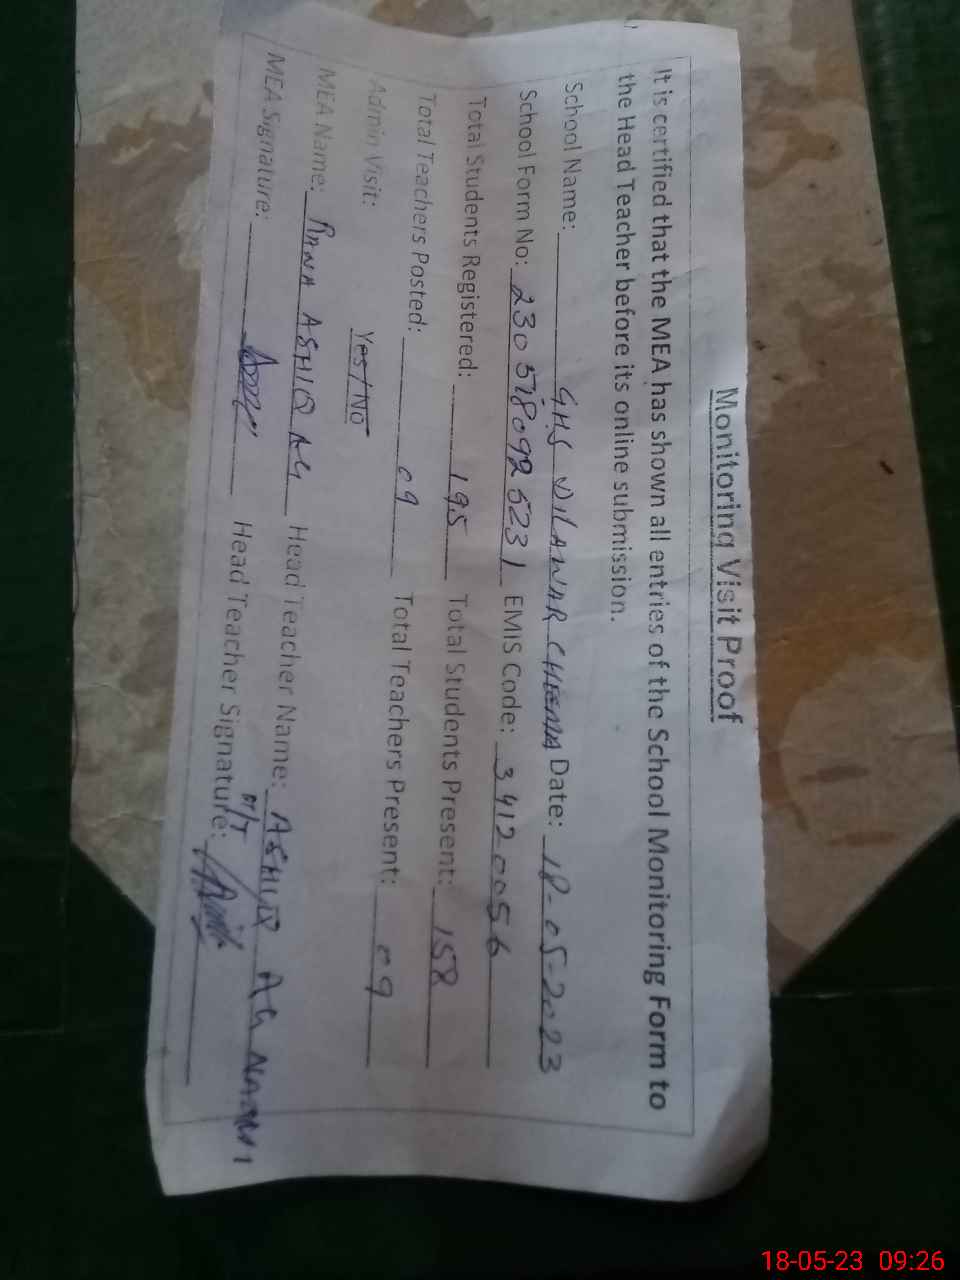 Monitoring Visit Proof
It is certified that the MEA has shown all entries of the School Monitoring Form to
the Head Teacher before its online submission.
School Name: GHS DILAWAR CHEEMA Date: 18-05-2023
School Form No: 2305180925231 EMIS Code: 34120056
Total Students Registered: 195 Total Students Present: 158
Total Teachers Posted: 09 Total Teachers Present: 09
Admin Visit: Yes/No
MEA Name: RANA ASHIQ ALI Head Teacher Name: ASHIQ ALI
MEA Signature: Head Teacher Signature:
18-05-23 09:26